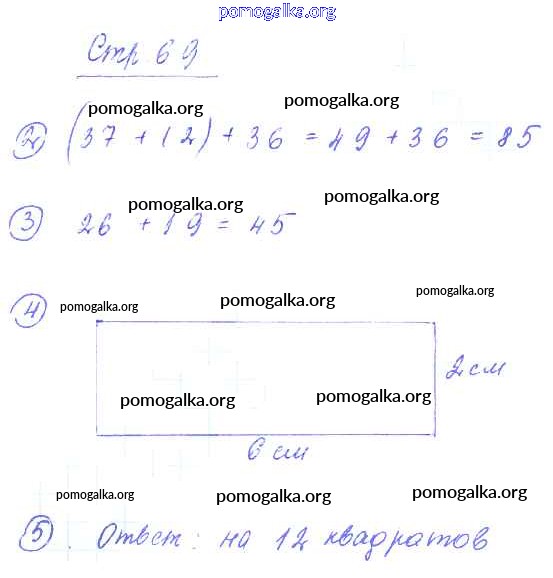 pomogalka.org
Стр 69
pomogalka.org pomogalka.org
2 (37 + 12) + 36 = 49 + 36 = 85
pomogalka.org pomogalka.org
3 26 + 19 = 45
4 pomogalka.org pomogalka.org pomogalka.org
2 см
pomogalka.org pomogalka.org
6 см
pomogalka.org pomogalka.org pomogalka.org
5. Ответ: на 12 квадратов